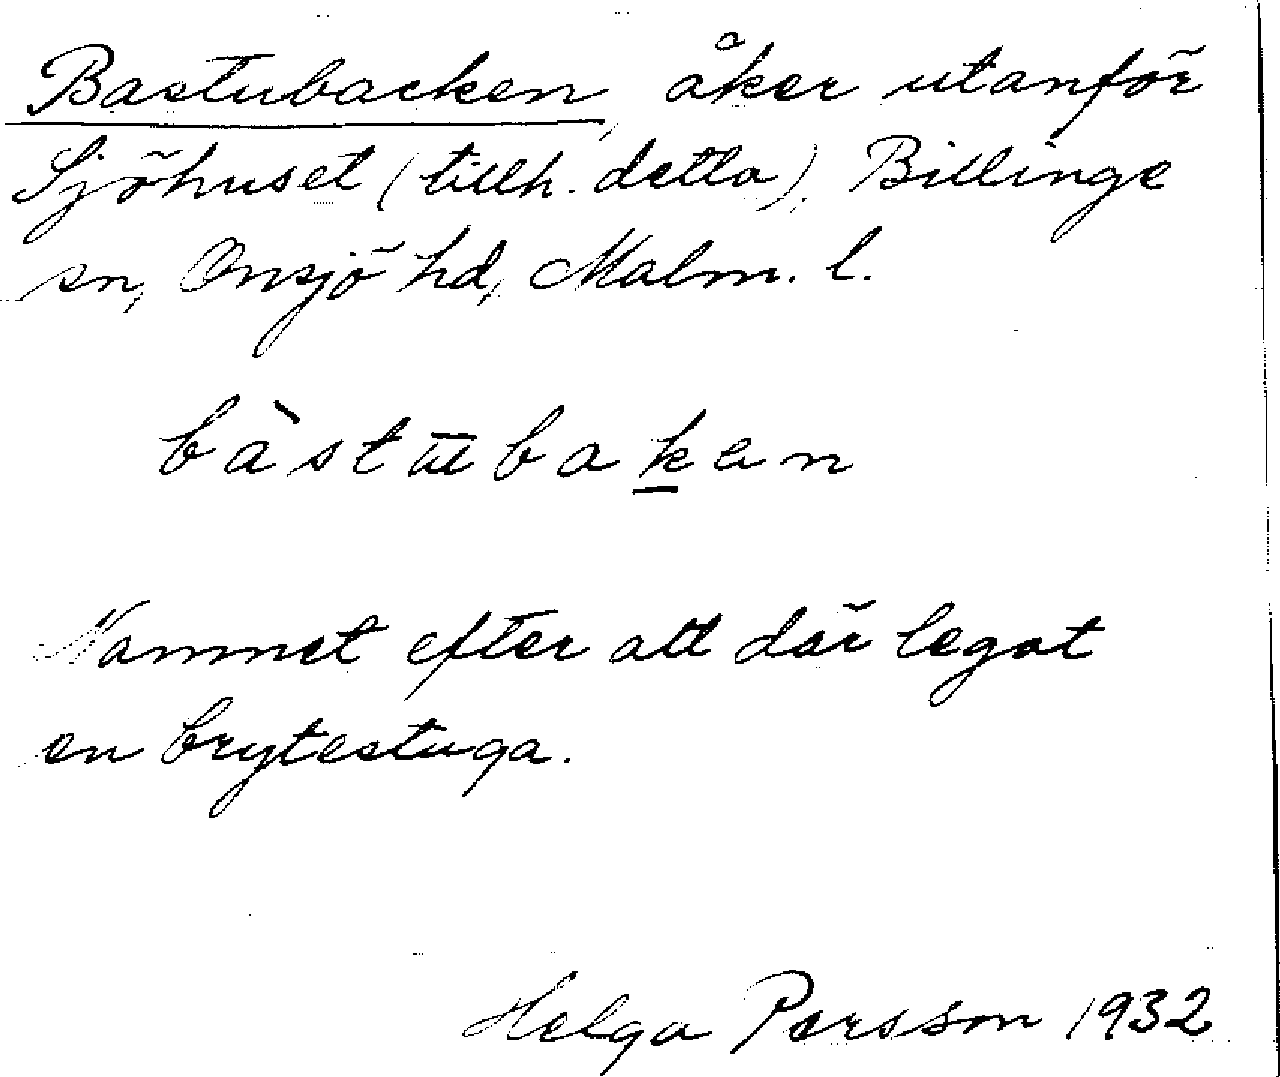 Bastubacken, åker utanför
Sjöhuset (tillh. detta), Billinge
sn, Onsjö hd, Malm. l.
bàstūbaḵen
Namnet efter att där legat
en brytestuga.
Helga Persson 1932